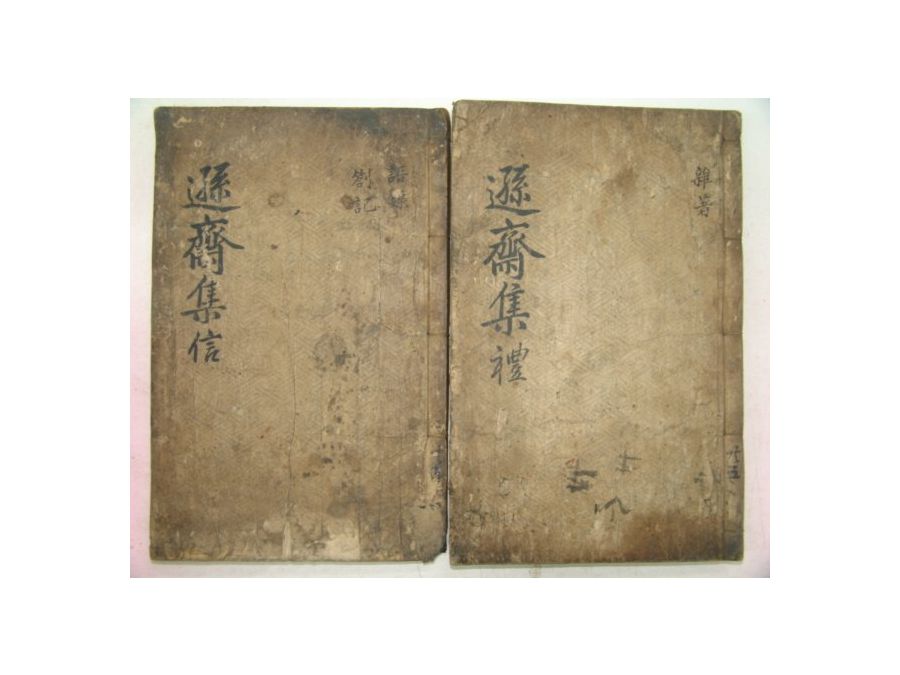 雜著
共五
遜齋集 禮
語錄
劄記
遜齋集 信